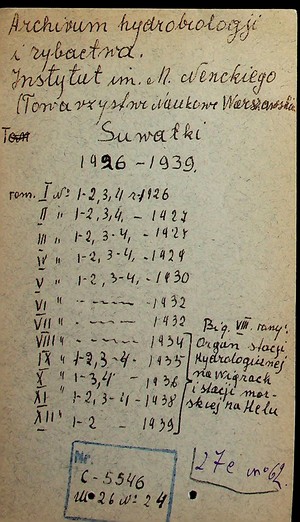 Archivum hydrobiologji
i rybactwa.
Instytut im. M. Nenckiego
(Towarzystwo Naukowe Warszawskie
Suwałki
1926 - 1939.
tom. I № 1-2, 3, 4 r. 1926
II " 1-2, 3, 4, - 1927
III " 1-2, 3-4, - 1928
IV " 1-2, 3-4, - 1929
V " 1-2, 3-4, - 1930
VI " - 1932
VII " - 1932
VIII " - 1934
IX " 1-2, 3-4 - 1935
X " 1-3, 4 - 1936
XI " 1-2, 3-4 - 1938
XII " 1-2 - 1939
VIII
Organ stacji
Hydrologicznej
na Wigrach
i stacji mor-
skiej na Helu
Nr.
C-5546
26 № 24
27e № 62.